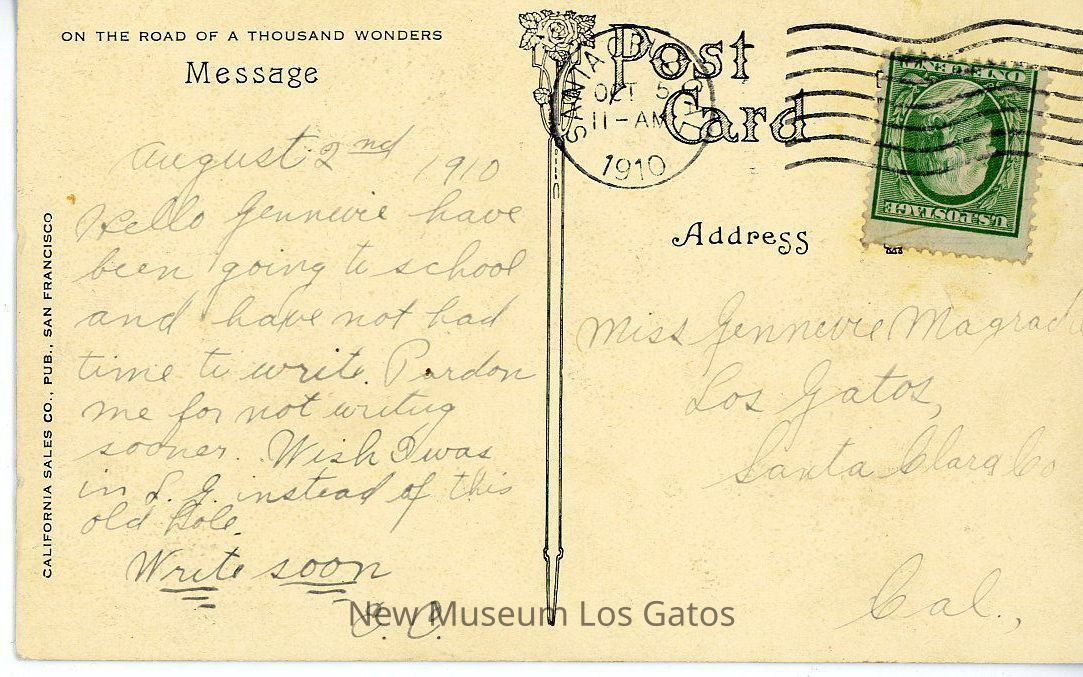 ON THE ROAD OF A THOUSAND WONDERS
Message
August 2nd 1910
Hello Gennevie have
been going to school
and have not had
time to write. Pardon
me for not writing
sooner. Wish I was
in L. G. instead of this
old hole.
Write soon
CALIFORNIA SALES CO., PUB., SAN FRANCISCO
Post
Card
SANTA CRUZ
OCT 5
11-AM
1910
ONE CENT
U.S. POSTAGE
Address
Miss Gennevie
Los Gatos,
Santa Clara Co
Cal.,
New Museum Los Gatos